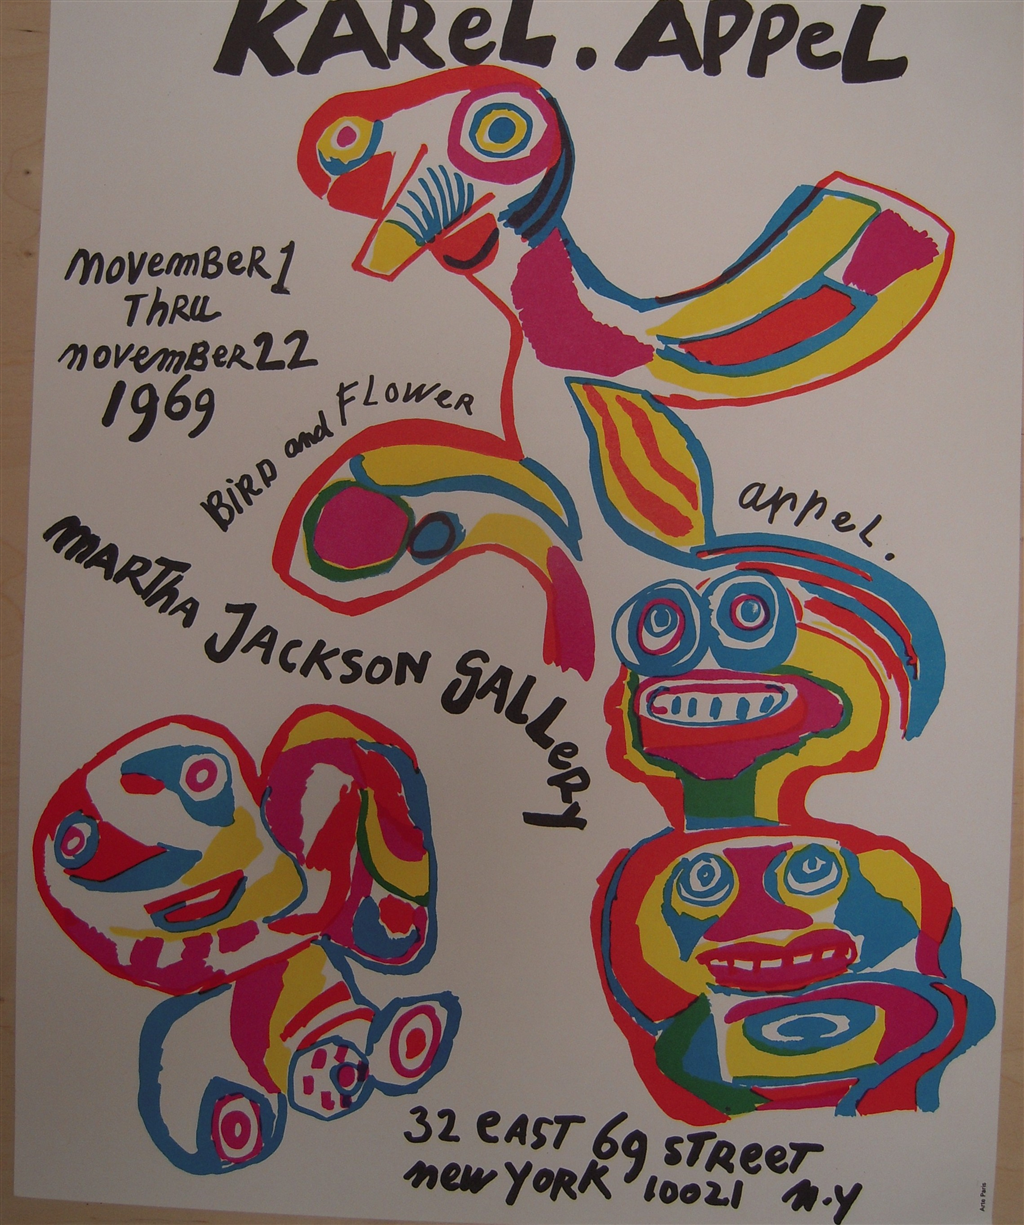 KAReL. APPeL
november 1
Thru
november 22
1969
BirD and FLOWer
appel.
MARTha JACKSON GALLerY
32 eAST 69 STreeT
new YORK 10021 N.Y
Arte Paris